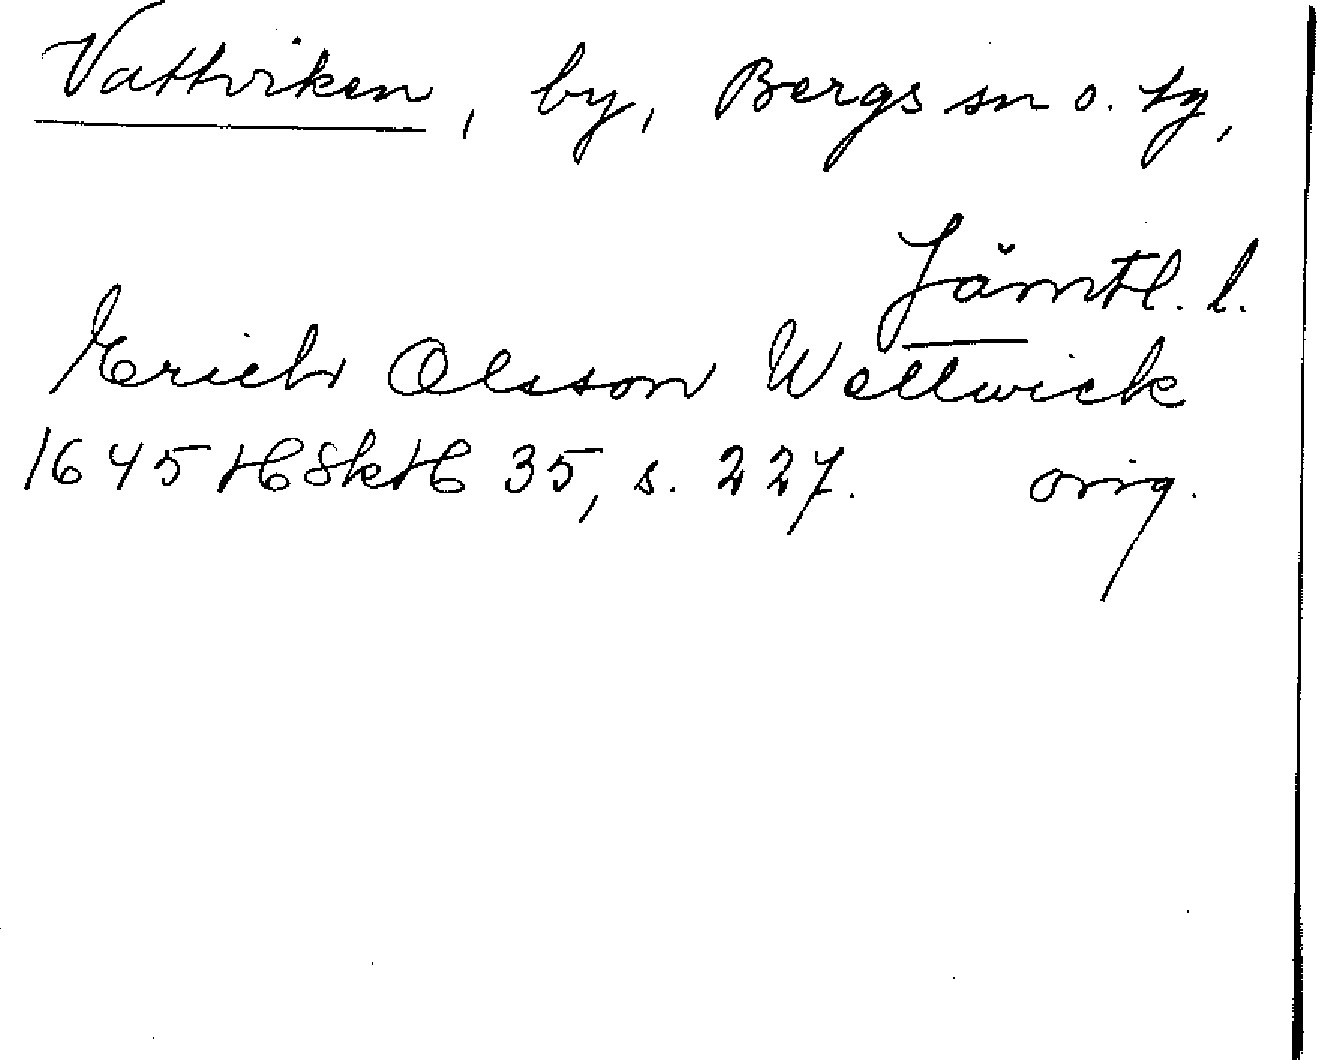 Vattviken, by, Bergs sn o. tg,
Jämtl. l.
Erich Olsson Wellwick
1645 HSkH 35, s. 227. orig.